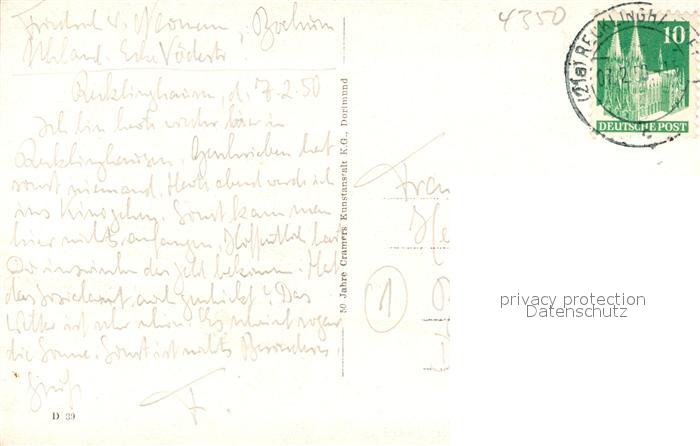 Friedrich v. Bochum
Uhland- Ecke Vödestr.
Recklinghausen, d. 7.2.50
Ich bin heute wieder in
Recklinghausen. Geschrieben hat
sonst niemand. Heute abend werde ich
ins Kino gehen. Sonst kann man
hier nichts anfangen. Hoffentlich hast
Du inzwischen das Geld bekommen. Hat
das Sozialamt auch geschickt? Das
Wetter ist sehr schön. Es scheint sogar
die Sonne. Sonst ist nichts Besonderes.
Gruß
F.
D 39
50 Jahre Cramers Kunstanstalt K.G., Dortmund
4350
(21a) RECKLINGH
10
DEUTSCHE POST
Frau
1
privacy protection
Datenschutz